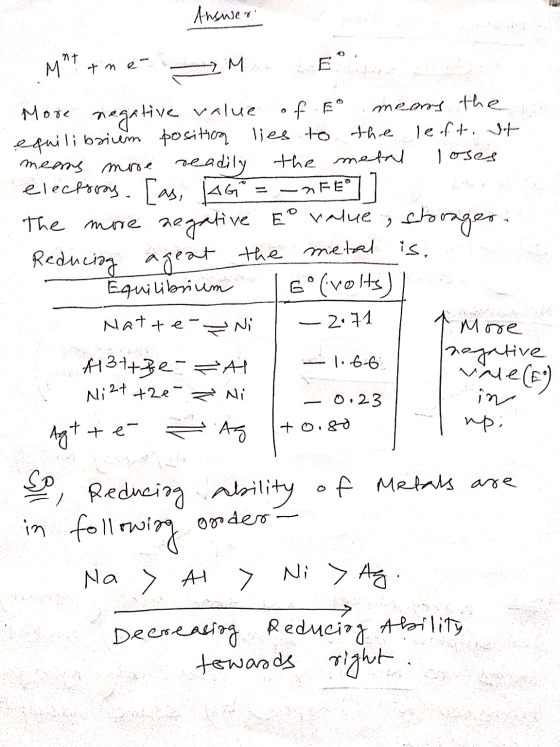 Answer
Mⁿ⁺ + n e⁻ ⇌ M E°.
More negative value of E° means the
equilibrium position lies to the left. It
means more readily the metal loses
electrons. [as, ΔG° = -nFE°]
The more negative E° value, stronger.
Reducing agent the metal is.
Equilibrium E° (volts)
Na⁺ + e⁻ ⇌ Ni - 2.71
Al³⁺ + 3e⁻ ⇌ Al - 1.66
Ni²⁺ + 2e⁻ ⇌ Ni - 0.23
Ag⁺ + e⁻ ⇌ Ag + 0.80
↑ More
negative
value (E°)
in
up.
So, Reducing ability of Metals are
in following order —
Na > Al > Ni > Ag.
Decreasing Reducing Ability
towards right.